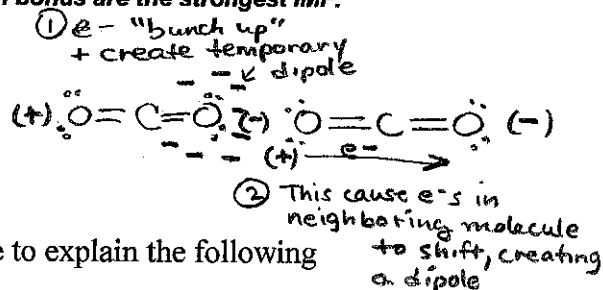 bonds are the strongest IMF.
① e- "bunch up"
+ create temporary
dipole
(+) O=C=O (-) O=C=O (-)
(+) e-
② This cause e-s in
neighboring molecule
to shift, creating
a dipole
e to explain the following